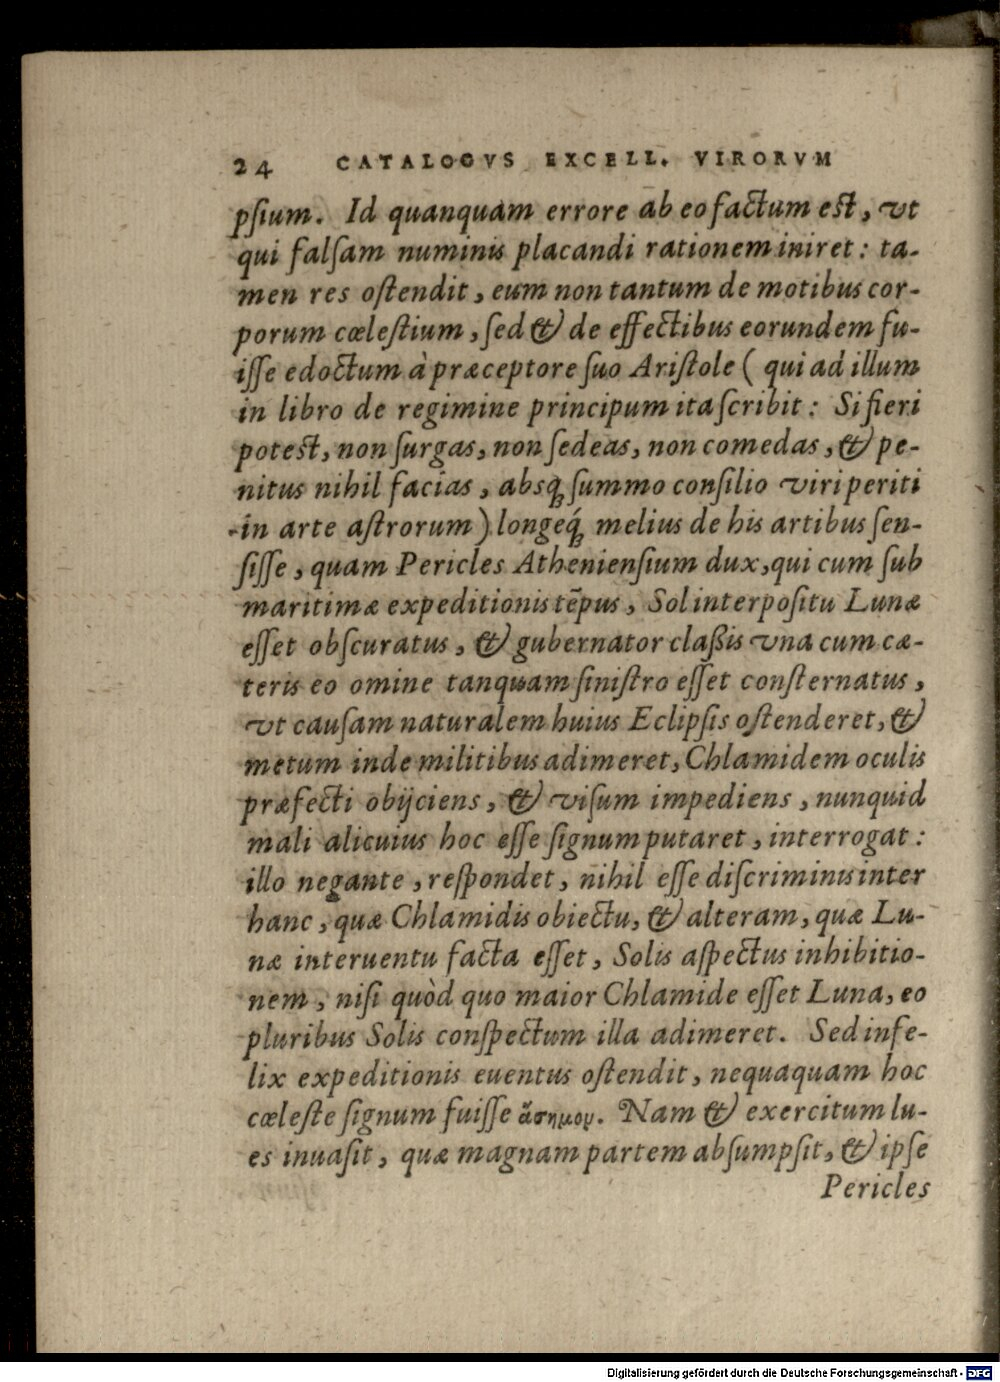 24 CATALOGVS EXCELL. VIRORVM
pſium. Id quanquam errore ab eo factum eſt, vt
qui falſam numinis placandi rationem iniret: ta-
men res oſtendit, eum non tantum de motibus cor-
porum cœleſtium, ſed & de effectibus eorundem fu-
iſſe edoctum à præceptore ſuo Ariſtole ( qui ad illum
in libro de regimine principum ita ſcribit: Si fieri
poteſt, non ſurgas, non ſedeas, non comedas, & pe-
nitus nihil facias, absq; ſummo conſilio viri periti
in arte aſtrorum ) longeq́; melius de his artibus ſen-
ſiſſe, quam Pericles Athenienſium dux, qui cum ſub
maritimæ expeditionis tẽpus, Sol interpoſitu Lunæ
eſſet obſcuratus, & gubernator claßis vna cum cæ-
teris eo omine tanquam ſiniſtro eſſet conſternatus,
vt cauſam naturalem huius Eclipſis oſtenderet, &
metum inde militibus adimeret, Chlamidem oculis
præfecti obijciens, & viſum impediens, nunquid
mali alicuius hoc eſſe ſignum putaret, interrogat:
illo negante, reſpondet, nihil eſſe diſcriminis inter
hanc, quæ Chlamidis obiectu, & alteram, quæ Lu-
næ interuentu facta eſſet, Solis aſpectus inhibitio-
nem, niſi quòd quo maior Chlamide eſſet Luna, eo
pluribus Solis conſpectum illa adimeret. Sed infe-
lix expeditionis euentus oſtendit, nequaquam hoc
cœleſte ſignum fuiſſe ἄσημον. Nam & exercitum lu-
es inuaſit, quæ magnam partem abſumpſit, & ipſe
Pericles
Digitalisierung gefördert durch die Deutsche Forschungsgemeinschaft - DFG